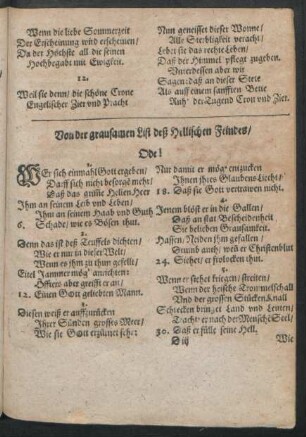 Wenn die liebe Sommerzeit
Der Erscheinung wird erscheinen/
Da der Höchste all die seinen
Hochbegabt mit Ewigkeit.
12.
Weil sie denn/ die schöne Crone
Engelischer Zier und Pracht
Nun geneisset dieser Wonne/
Alle Sterbligkeit veracht/
Lebet sie das rechte Leben/
Daß der Himmel pflegt zugeben.
Unterdessen aber wir
Sagen: daß an dieser Stete
Als auff einem sanfften Bette
Ruh' der Tugend Cron und Zier.
Von der grausamen List deß Hellischen Feindes/
Ode!
1.
WEr sich einmahl Gott ergeben/
Darff sich nicht besorgt mehr/
Daß das gantze Hellen Heer
Ihm an seinem Leib und Leben/
Ihm an seinem Haab und Guth
6. Schade/ wie es Bösen thut.
2.
Denn das ist deß Teuffels dichten/
Wie er nur in dieser Welt/
Wenn es ihm zu thun gefelt/
Eitel Jammer mög' anrichten:
Öffters aber greifft er an/
12. Einen Gott geliebten Mann.
3.
Diesen weiß er auffzurücken
Ihrer Sünden grosses Meer/
Wie sie Gott erzürnet sehr
Nur damit er mög' entzucken
Ihnen ihres Glaubens Liecht/
18. Daß sie Gott vertrawen nicht.
4.
Jenem blöst er in die Gallen/
Daß an stat Bescheidenheit
Sie belieben Grausamkeit.
Hassen/ Neiden ihm gefallen/
Drumb auch/ weñ er Christenblut
24. Siehet/ er frolocken thut.
5.
Wenn er siehet kriegen/ streiten/
Wenn der heische Trommelschall
Und der grossen Stücken Knall
Schrecken bringet Land und Leuten/
Tracht' er nach der Menschē Seel/
30. Daß er fülle seine Hell.
D iij
Wie